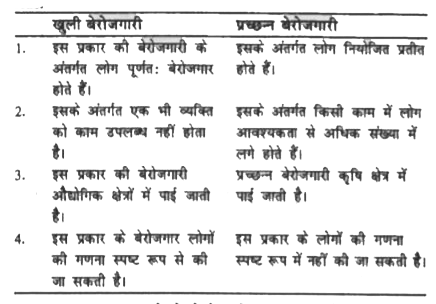 खुली बेरोजगारी प्रच्छन्न बेरोजगारी
1. इस प्रकार की बेरोजगारी के इसके अंतर्गत लोग नियोजित प्रतीत
अंतर्गत लोग पूर्णतः बेरोजगार होते हैं।
होते हैं।
2. इसके अंतर्गत एक भी व्यक्ति इसके अंतर्गत किसी काम में लोग
को काम उपलब्ध नहीं होता आवश्यकता से अधिक संख्या में
है। लगे होते हैं।
3. इस प्रकार की बेरोजगारी प्रच्छन्न बेरोजगारी कृषि क्षेत्र में
औद्योगिक क्षेत्रों में पाई जाती पाई जाती है।
है।
4. इस प्रकार के बेरोजगार लोगों इस प्रकार के लोगों की गणना
की गणना स्पष्ट रूप से की स्पष्ट रूप में नहीं की जा सकती है।
जा सकती है।